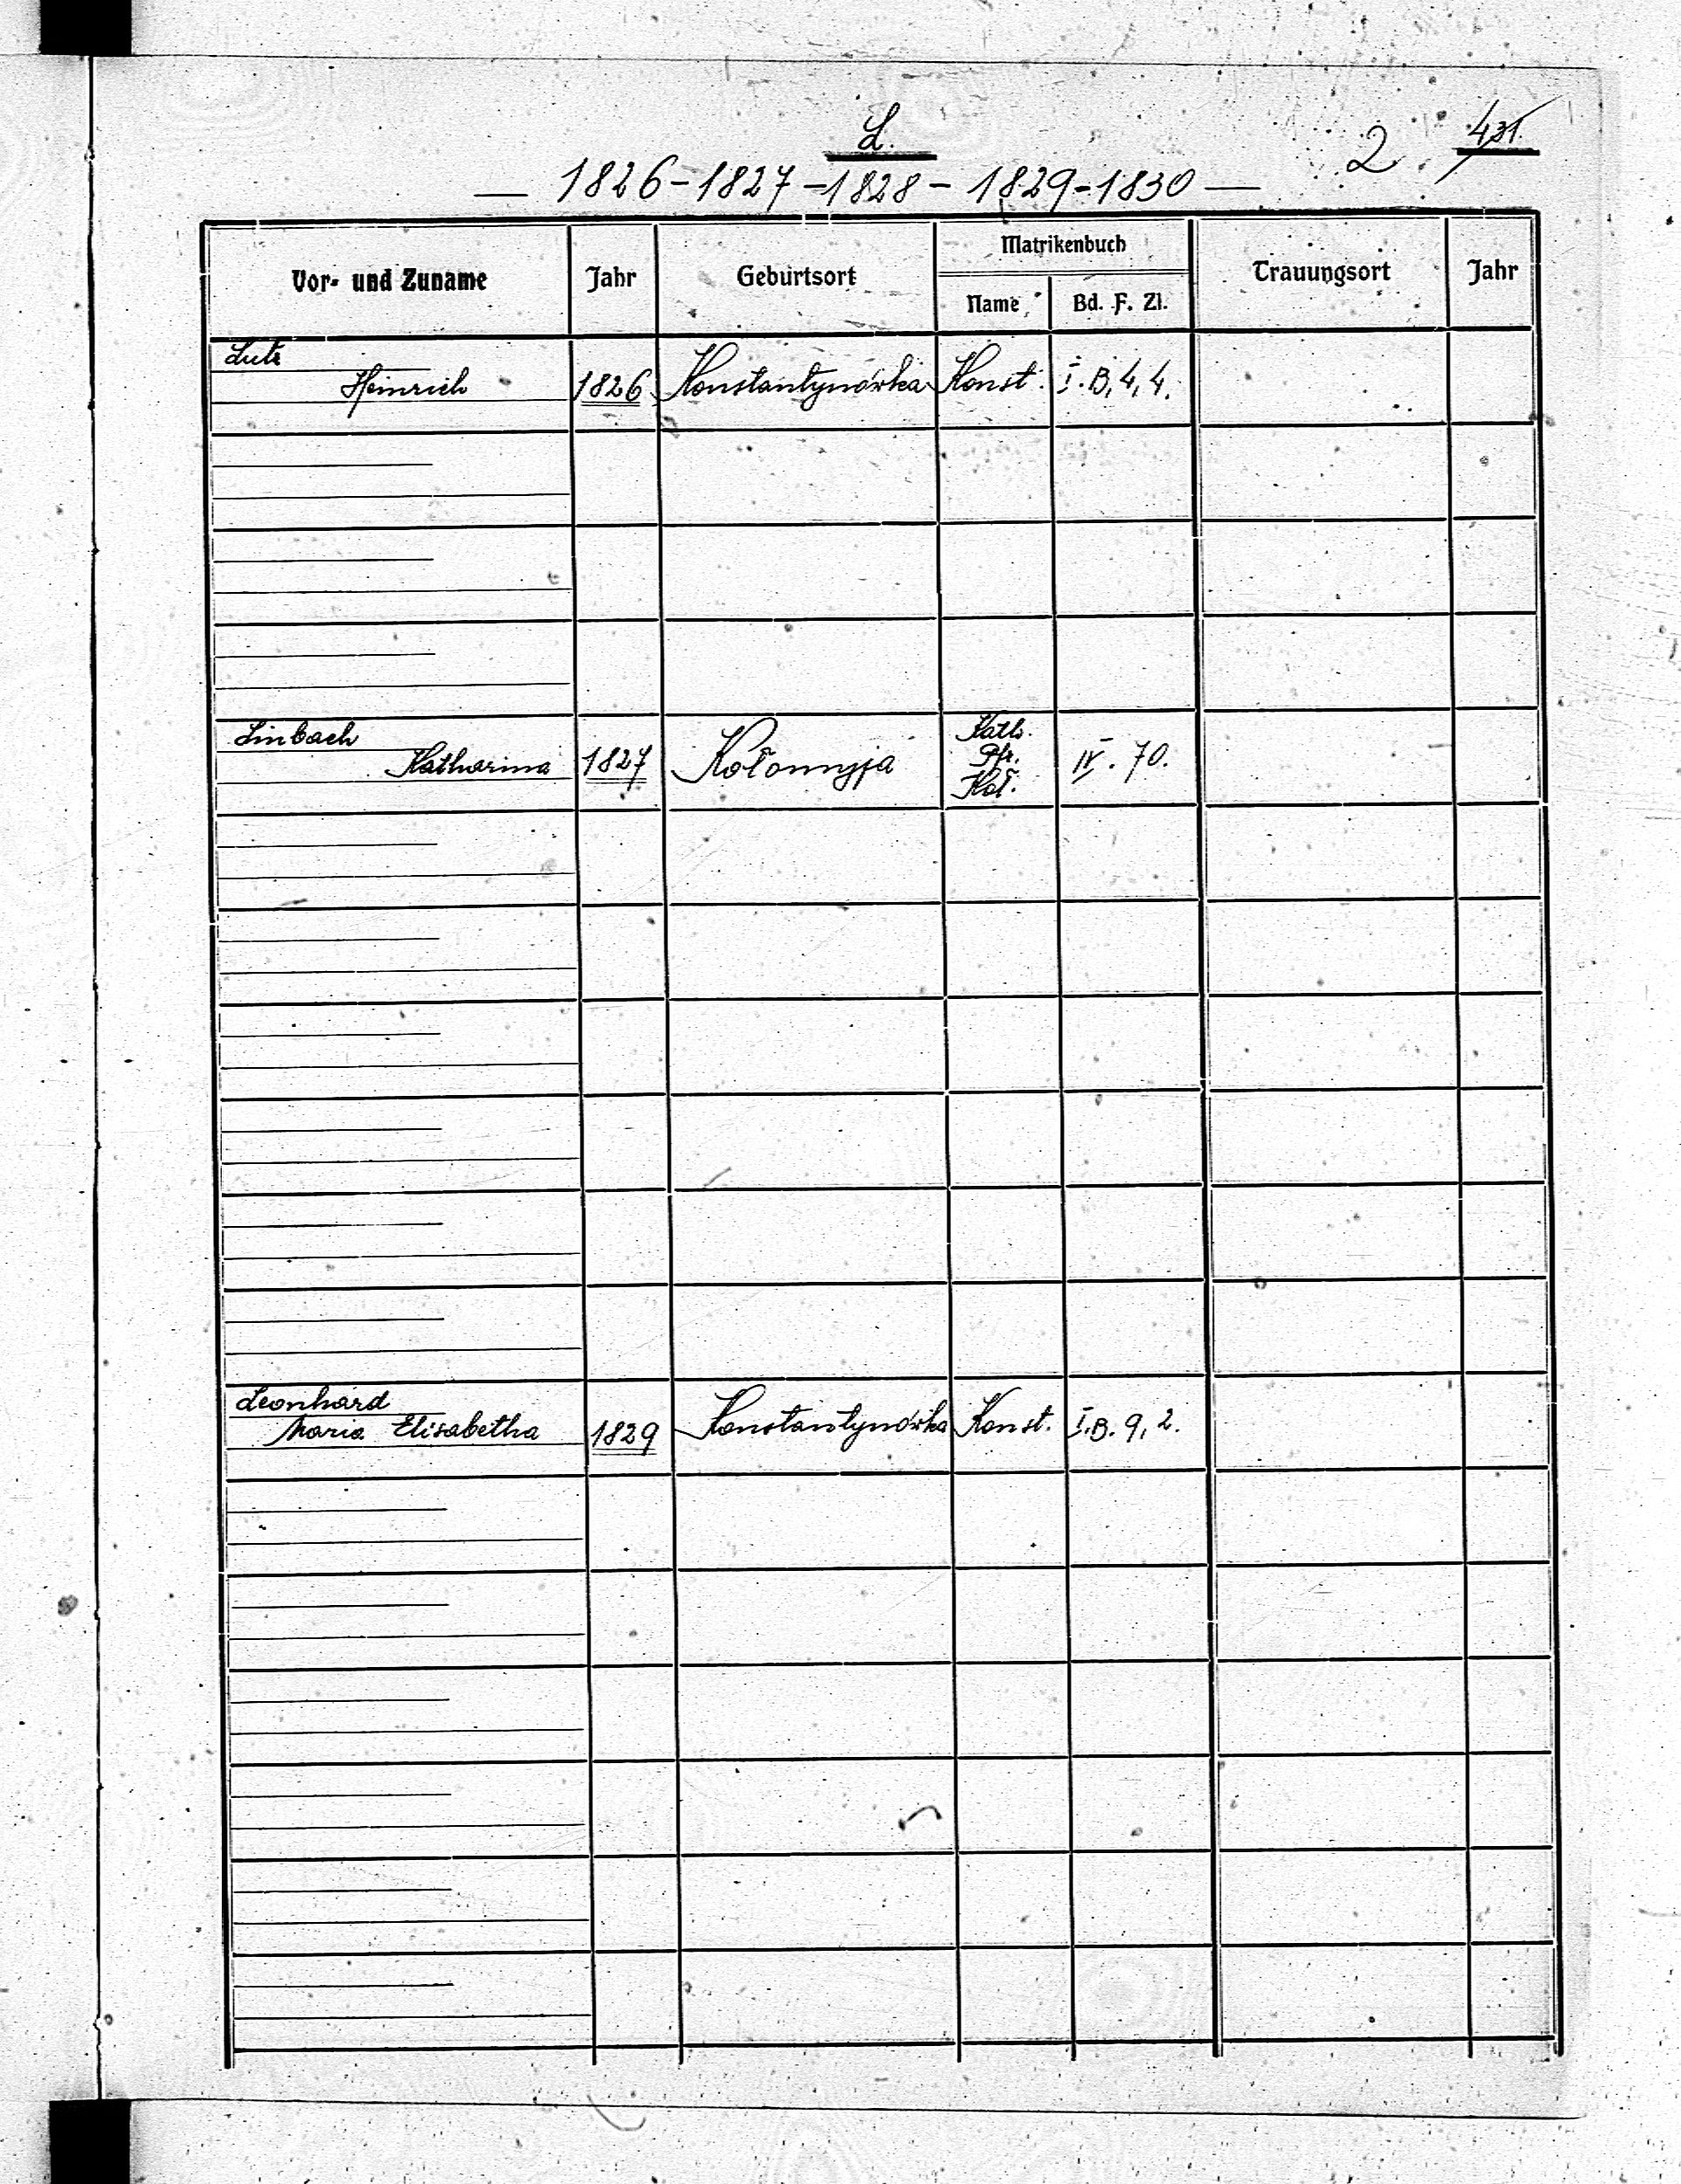 L.
2 431.
— 1826-1827-1828-1829-1830 —
Vor- und Zuname Jahr Geburtsort Matrikenbuch Trauungsort Jahr
Name Bd. F. Zl.
Lutz
Heinrich 1826 Konstantynówka Konst. I.B,4,4.
Linbach
Katharina 1827 Kołomyja Kath. Pfr. Koł. IV. 70.
Leonhard
Maria Elisabetha 1829 Konstantynówka Konst. I.B. 9,2.